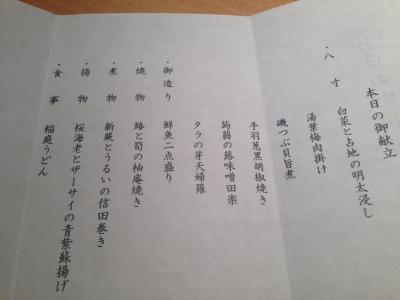 本日の御献立
・八寸
白菜と占地の明太浸し
湯葉梅肉掛け
磯つぶ貝旨煮
手羽葱黒胡椒焼き
蒟蒻の蕗味噌田楽
タラの芽天婦羅
・御造り
鮮魚二点盛り
・焼物
鰆と筍の柚庵焼き
・煮物
新蕨とうるいの信田巻き
・揚物
桜海老とザーサイの青紫蘇揚げ
・食事
稲庭うどん